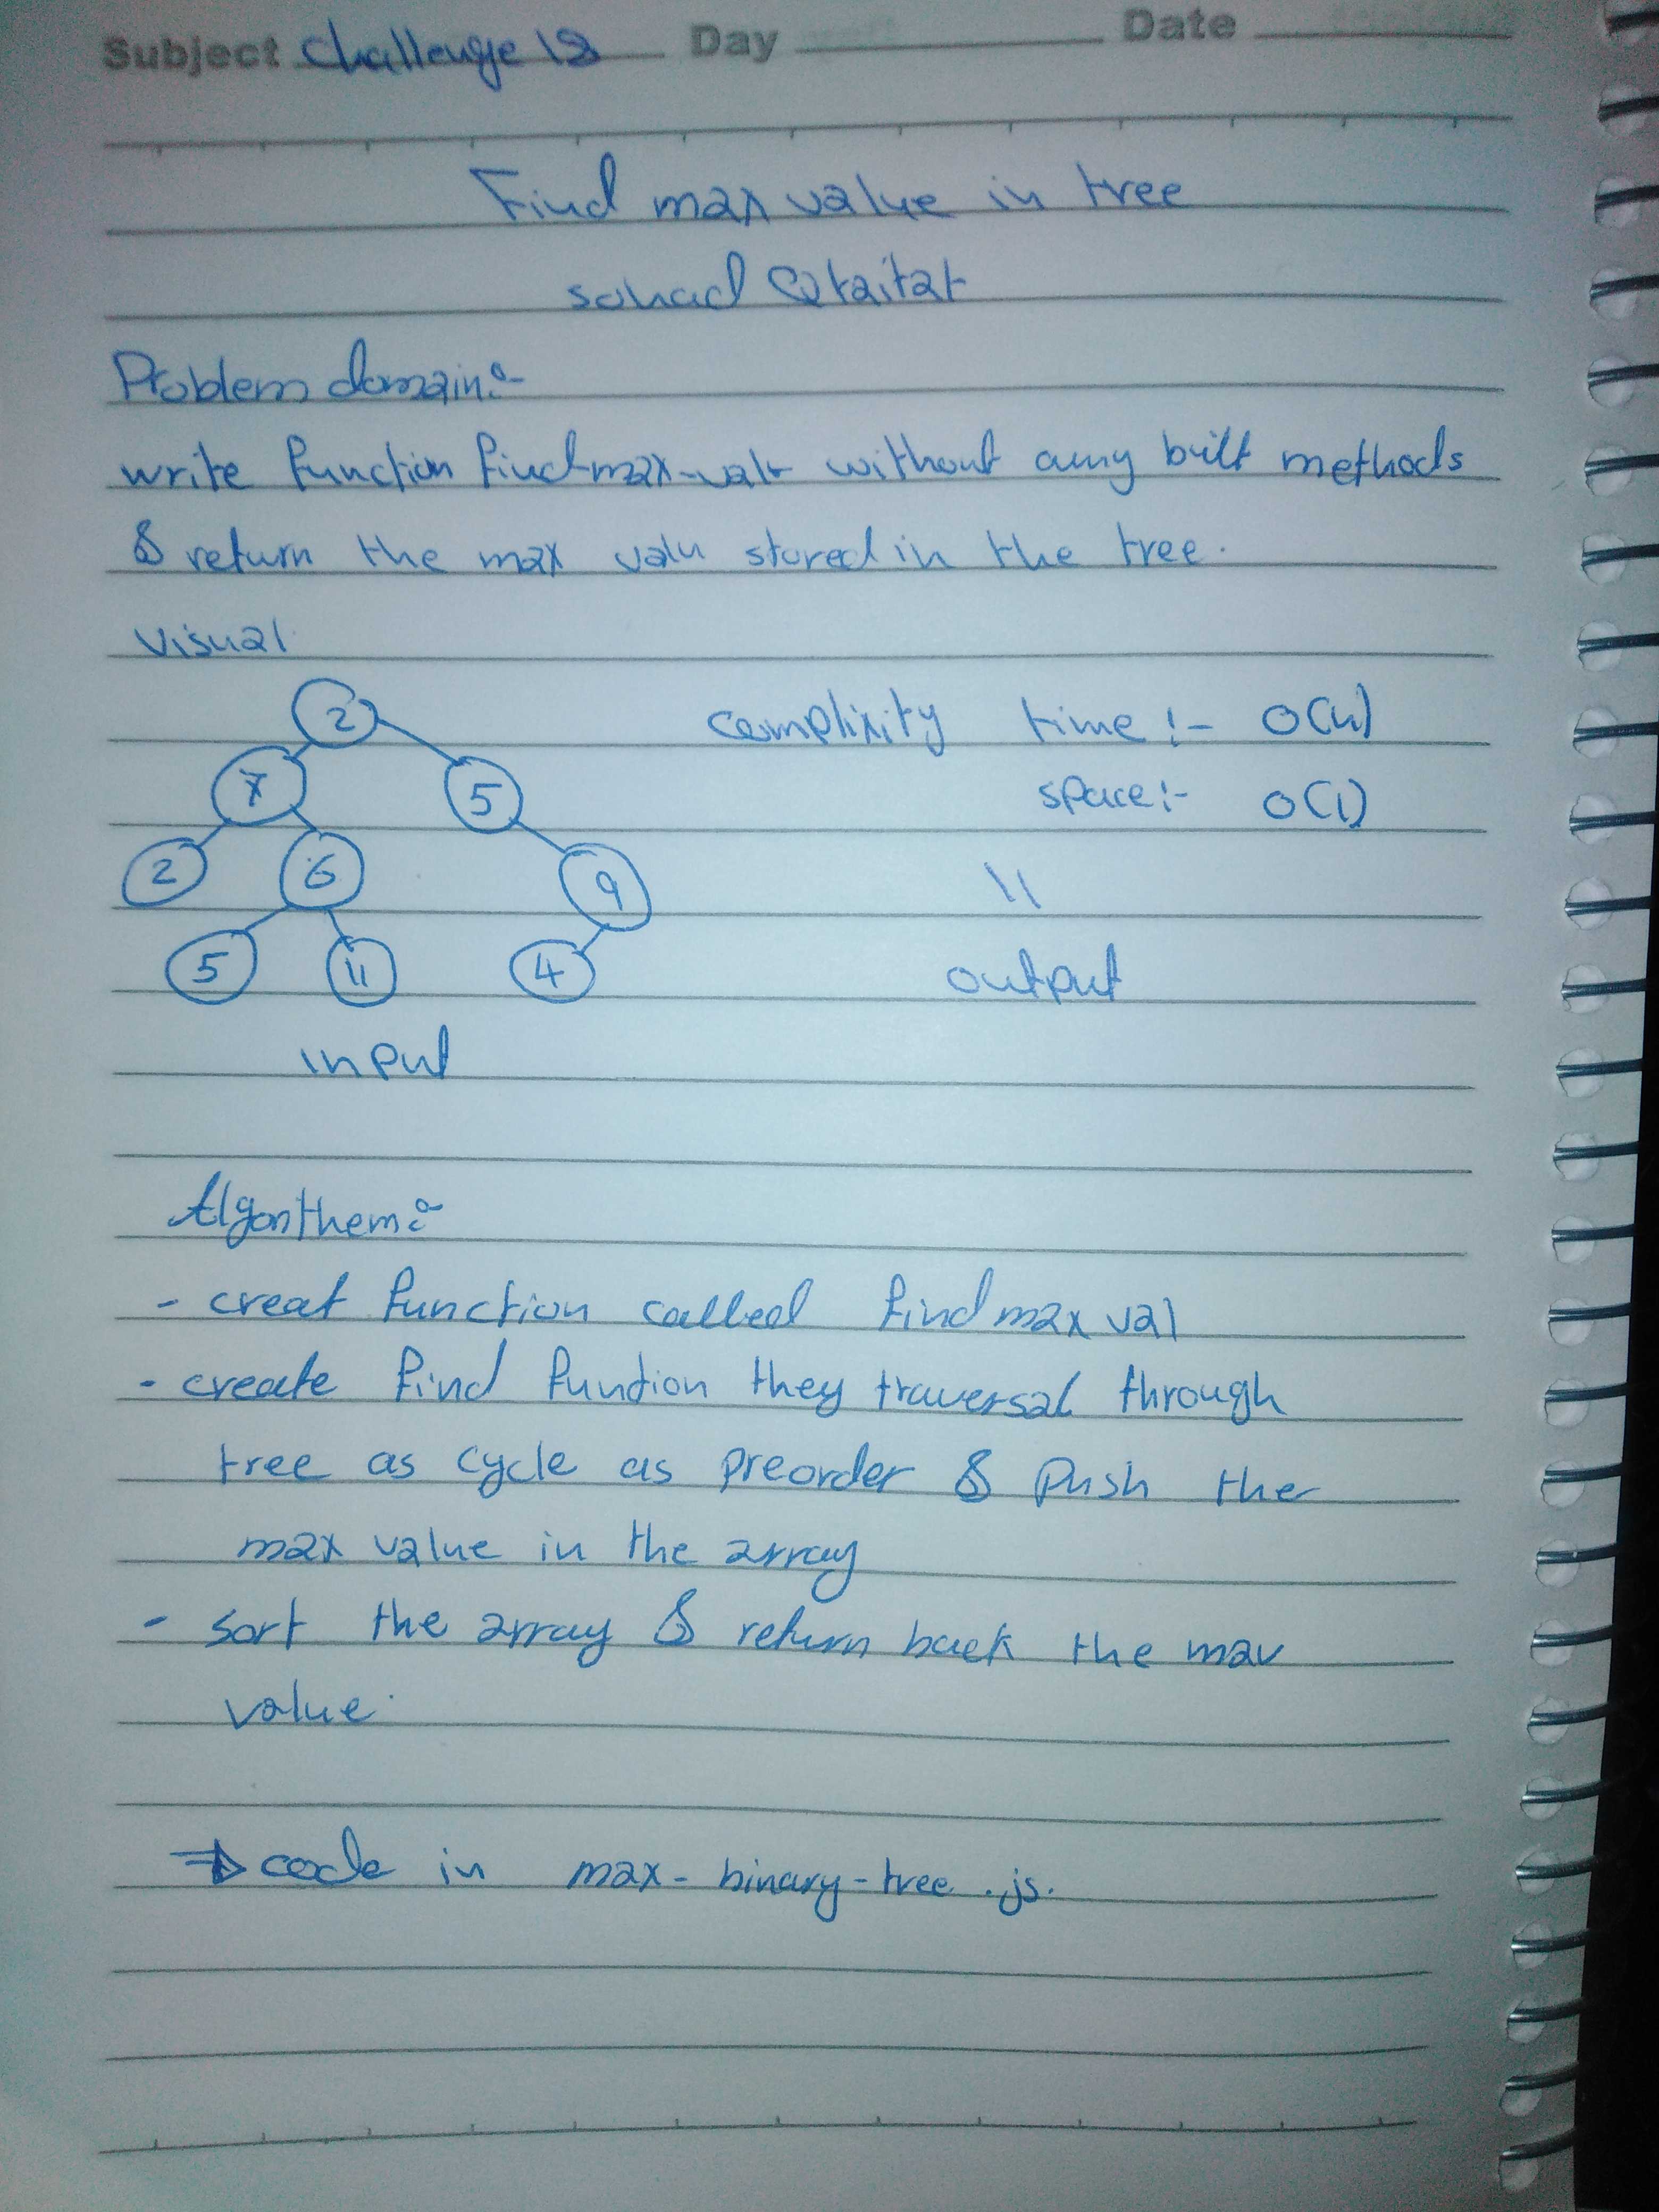 Subject Challenge 18 Day Date
Find max value in tree
sohad Qtaitat
Problem domain:-
write function find-max-value without any bult methods
& return the max valu stored in the tree.
visual
2
complixity time :- O(n)
7 5
space :- O(1)
2 6 9
11
5 11 4
output
input
Algorithem:-
- creat function called find max val
- create find funtion they traversal through
tree as cycle as preorder & push the
max value in the array
- sort the array & return back the max
value.
⇒ code in max-binary-tree.js.